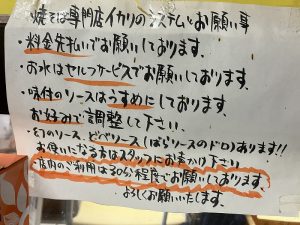 焼そば専門店イカリのシステムとお願い事
・料金先払いでお願いしております。
・お水はセルフサービスでお願いしております。
・味付のソースはうすめにしております。
お好みで調整して下さい。
・幻のソース、どべソース(ばらソースのドロ)あります!!
お使いになる方はスタッフにお声かけ下さい
・店内のご利用は30分程度でお願いしております。
よろしくお願いいたします。